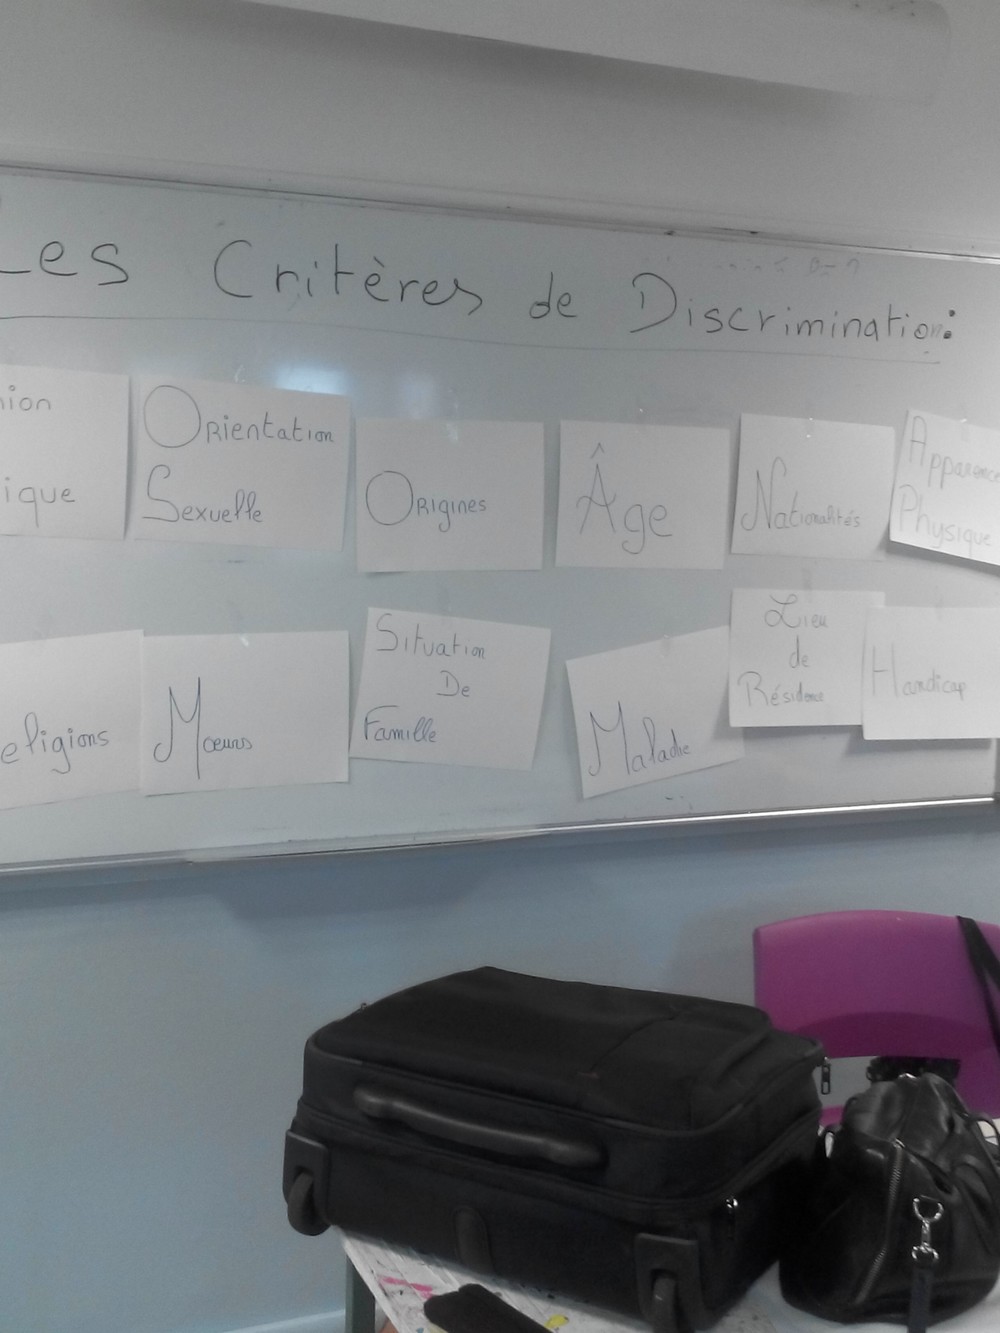 Les Critères de Discrimination:
nion
ique
Orientation
Sexuelle
Origines
Âge
Nationalités
Apparence
Physique
eligions
Mœurs
Situation
De
Famille
Maladie
Lieu
de
Résidence
Handicap